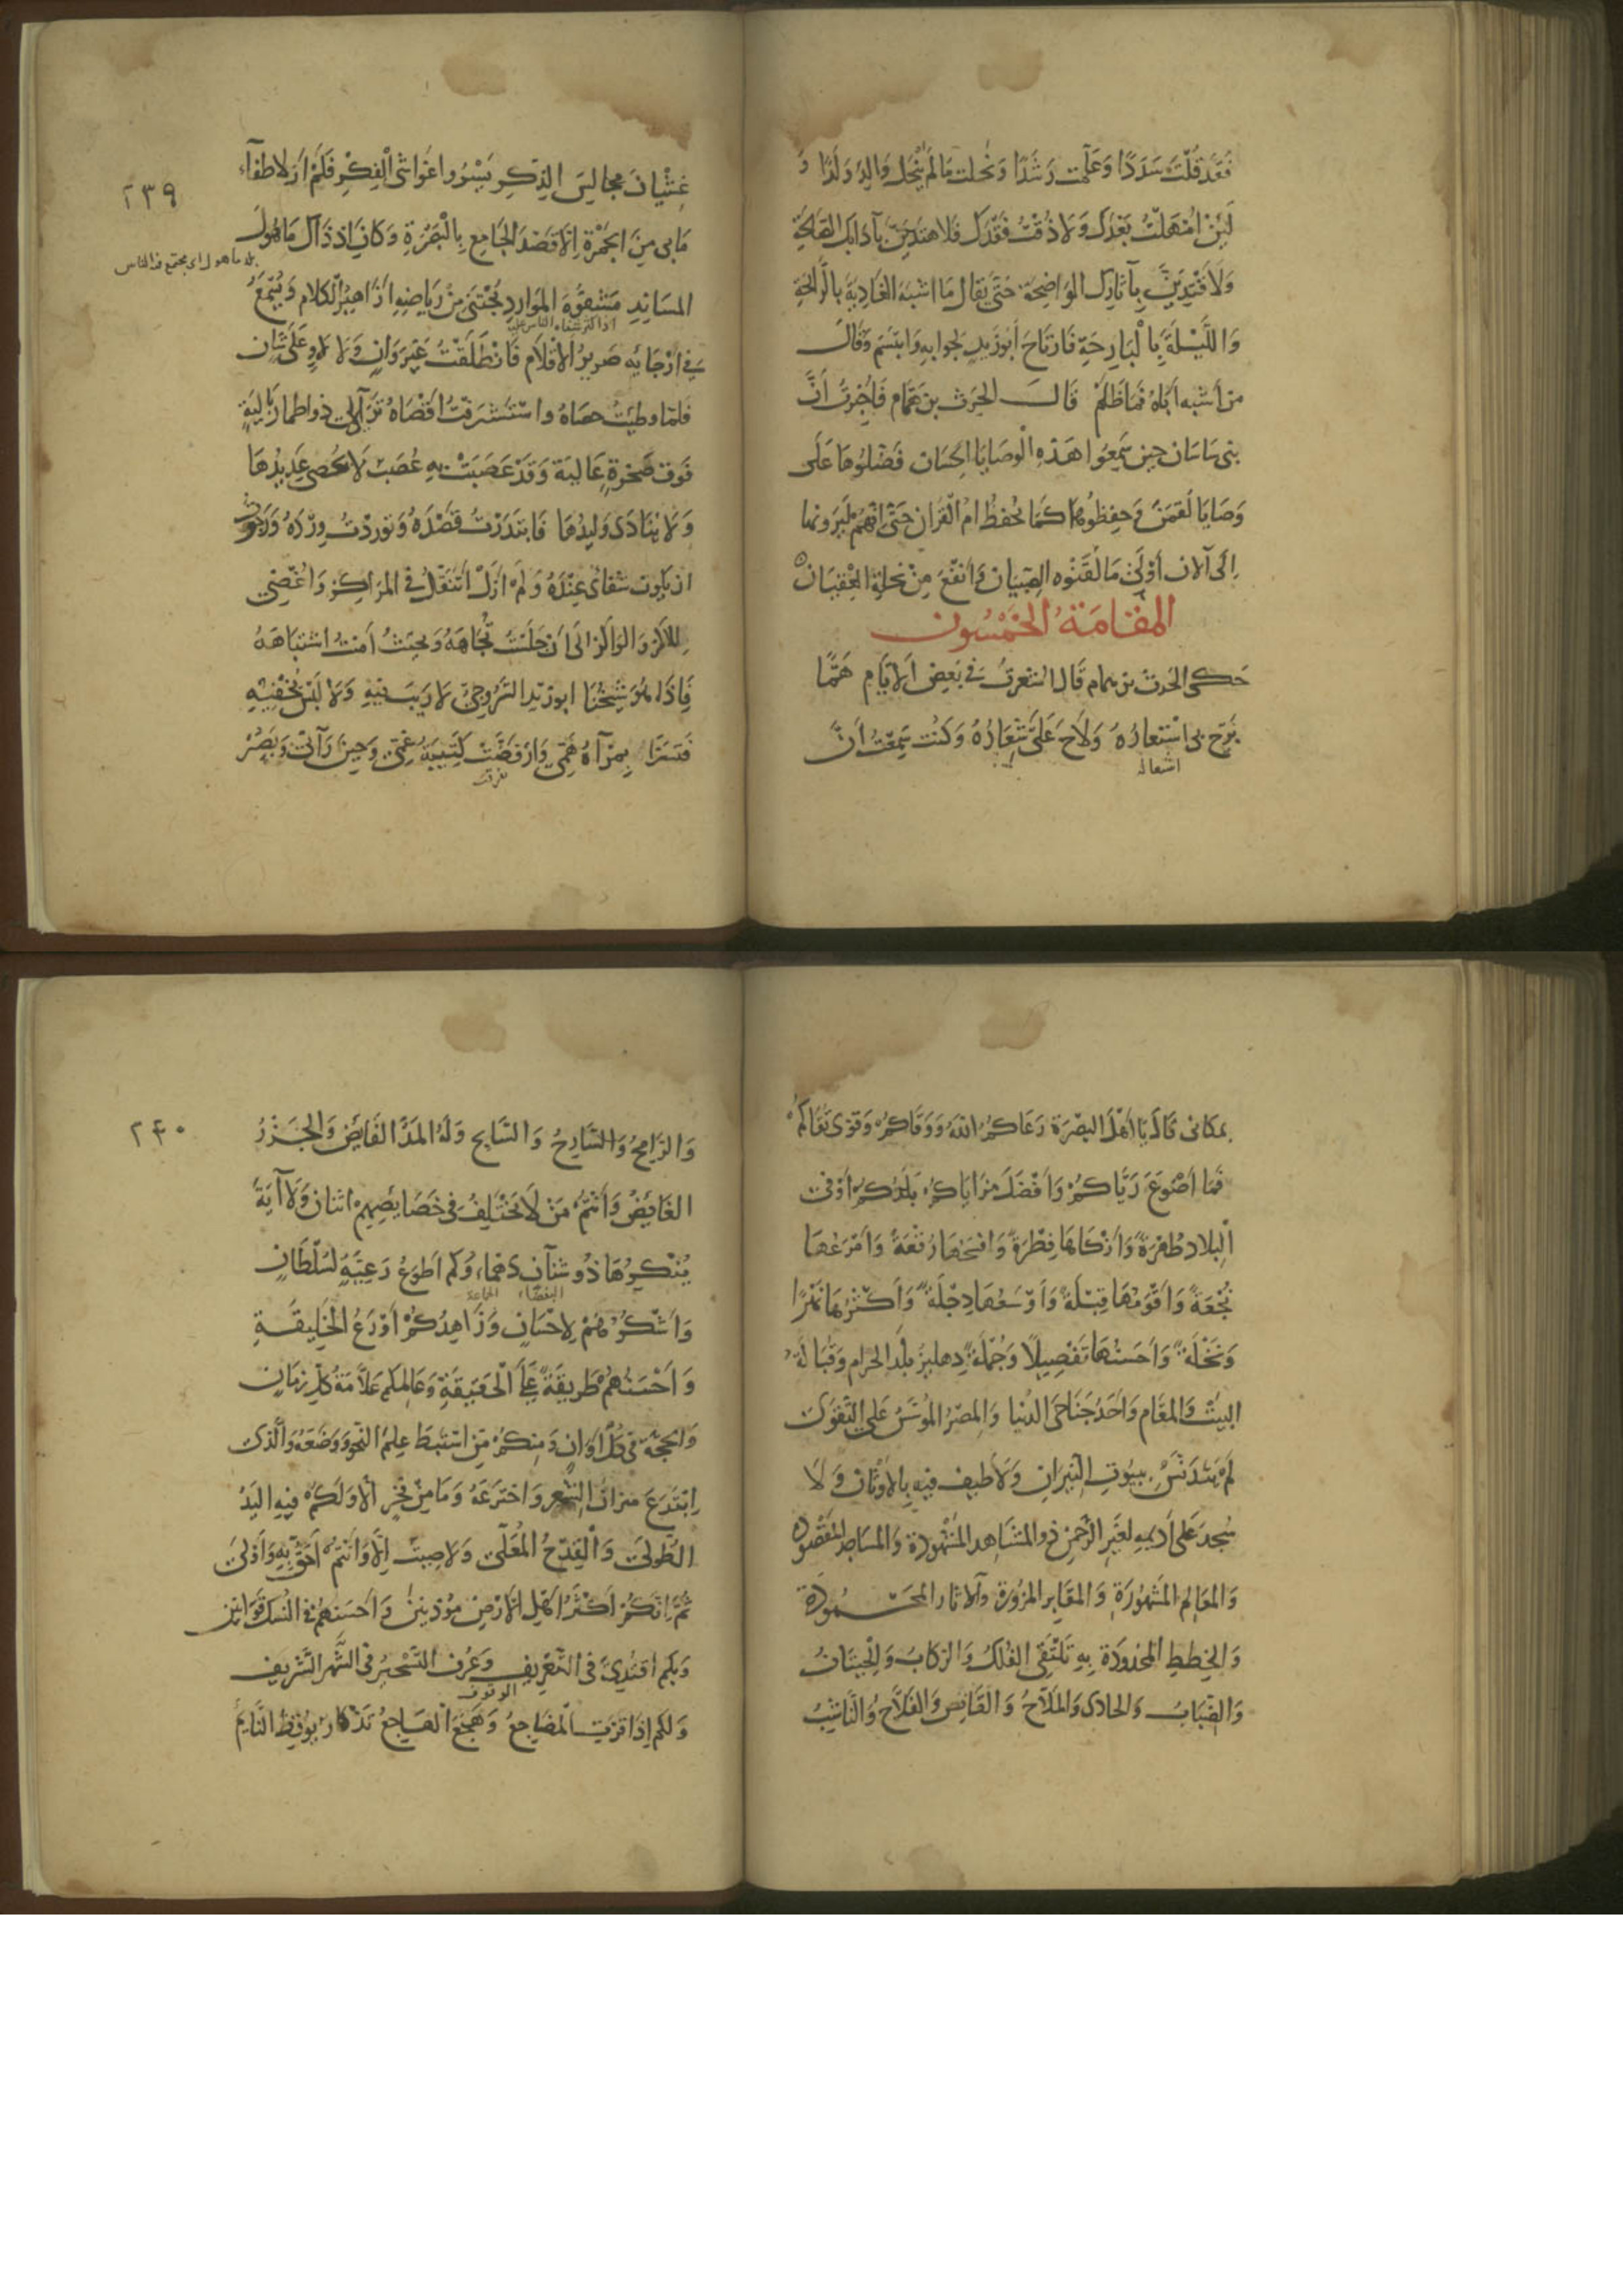 فَقَد قُلْتَ سَدَدًا وَعَلَّمت رَشَدًا وَنَحَلت مَا لَمْ يَنْحَل وَالِدٌ وَلَدًا وَ
لَئِنْ امْهَلْتُ بَعْدَكَ وَلَا ذُقْتُ فَقْدَكَ فَلَا هتَدِيَنَّ بآدَابك الصَّالِحَةِ
وَلَاقْتَدِيَنَّ بِآثَارِكَ الوَاضِحَة حَتّى يُقَالَ مَا اشْبَهَ الغَادِيَةَ بِالرَّائِحَةِ
وَاللَّيْلَةَ بِالْبَارِحَةِ فَارْتَاحَ أَبُوزَيدٍ لِجوابِهِ وَابْتَسَمَ وَقَالَ
من أشْبه أَبَاهُ فَمَا ظَلَمَ قَالَ الحَرِث بن هَمَّام فَأُخْبِرتُ أَنَّ
بَنِى سَاسَان حِينَ سَمِعُوا هَذِهِ الْوصَايَا الحِسَان فَضَّلُوهَا عَلَى
وَصَايَا لُقمَنَ وَحفِظُوهَا كَمَا يُحْفظُ امُ القُرانِ حَتَّى انّهُمْ لَيَرَونهَا
إِلَى الآن أَوْلَى مَا لَقَّنُوه الصِّبْيَانَ وَأَنفَعَ مِنْ نِحلَةِ العِقْيَان
المقَامَةُ الخَمْسُون
حَكى الحَرث بن همام قَالَ اشعِرتُ فِى بَعضِ الايَّامِ هَمًّا
بَرّح بى اسْتعارُهُ وَلَاحَ عَلَىَّ شِعَارُهُ وَكُنْت سَمِعْتُ انَّ
اشعاله
٢٣٩
غِشْيانَ مجَالِس الذِكر يَسْرُوا غَوَاشى الْفِكْر فَلَمْ أرَ لاطفآء
مَا بى مِنَ الجَمْرَة إلّا قَصْدَ الجَامِع بِالْبَصْرَةِ وَكَانَ اذ ذَاك مَاهُولَ
المسَانِد مَشْفوهَ المَوارِد يُجْتَنَى مِنْ رِيَاضِهِ ازَاهِيرُ الكَلام وَيُسْمَعُ
فى ارْجَائِه صَرِيرُ الاقْلَام فَانْطَلَقْتُ غَيْرَ وَانٍ وَلَا لاوٍ عَلَى شَان
فلمَّا وطِئتُ حصَاهُ واسْتَشْرَفتُ اقْصَاهُ تَرَآءى لى ذو اطمار بَاليَةٍ
فَوق صَخرةٍ عَالِيَة وَقَدْ عَصَبَتْ بِهِ عُصَبٌ لَا يُحْصى عَدِيدُهَا
وَلَا يُنَادَى وَلِيدُهَا فَابتَدَرْتُ قَصْدَهُ وَتَورَدْتُ وِرْدَهُ وَرَجَوْتُ
ان يَكُونَ شفَائى عِنْدَهُ وَلَمْ ازَلْ اتنَقَّلُ فِى المَرَاكِزِ وَاُغْضِى
لِللَاكِز وَالواكِز الَى أن جَلَسْتُ تُجَاهَهُ وَبحيثُ أمنتُ اشتبَاهَهُ
فَاِذَا هُوَ شَيْخُنَا ابوزيد السَّرُوجِىّ لَا رَيبَ فِيهِ وَلَا لَبْسَ يُخْفِيْهِ
فَتَسَرَّا بِمَرْآهُ هَمِّى وَارفَضَّتْ كَتِيبَةُ غَمِّى وَحِينَ رَآنى وَبَصُرَ
تفرقت
بِمكَانى قَالَ يَا اهْلَ البصْرَة رَعَاكُمُ اللهُ وَوَقَاكُمْ وَقَوَّى تُقَاكُمْ
فَمَا اضْوَعَ رَيَّاكُمْ وَافْضَلَ مَزَايَاكُمْ بلَدُكُمْ أوْفَى
البِلَاد طُهْرَةً وَازْكَاهَا فِطْرَةً وَافسَحُهَا رُقْعَةً وَامْرَعُهَا
نُجْعَةً وَاقْوَمُهَا قِبْلَةً وَاوْسَعُهَا دِجْلَةً وَاكْثَرُهَا نَهْرًا
وَنَخْلَةً وَاحسَنُهَا تَفْصِيلًا وَجُمْلَةً دِهلِيزُ بلَد الحرَام وَقُبَالَةُ
البيْتِ وَالمَقَام وَاحَدُ جَنَاحَىِ الدُّنيا وَالمِصْرُ المُؤسَّسُ عَلَى التَّقوَى
لَمْ يَتَدَنّسْ بِبيُوتِ النِّيرَانِ وَلَا طِيفَ فِيهِ بِالاوْثَانِ وَلَا
سُجِدَ عَلى أَدِيمِهِ لِغَيرِ الرَّحمنِ ذو المشَاهِد المَشهُودَةِ وَالمسَاجِد المَقصُودَه
وَالمَعَالِم المَشهُورَةِ وَالمقَابِر المزُورَة وَالاثار المحْمُودَةِ
وَالخِطَطِ المَحْدُودَة بِهِ تَلْتَقِى الفُلْكُ وَالركَابُ وَالحِيتَانُ
وَالضِّبَابُ وَالحَادِى وَالمَلَّاحُ وَالقَانِصُ وَالفَلَّاحُ وَالنَّاشِبُ
٢٤٠
وَالرَّامِحُ وَالسَّارِحُ وَالسَّابِح وَلَهُ المَدُّ الفَايِضُ وَالجَزْرُ
الغَائِضُ وَأَنْتُمْ مَنْ لَا يَختَلِفُ فِى خَصَايِصِهِمْ اثنان وَلَا آيَةَ
يُنْكِرُهَا ذُو شَنآنٍ دَهْمَاؤُكُم اَطوَعُ رَعِيَّةٍ لسُلْطَانٍ
البغضاء الجماعة
وَاشْكَرُهُمْ لإِحْسَانٍ وَزَاهِدُكُمْ أوْرَعُ الخَلِيقَةِ
وَاحْسَنُهُمْ طَرِيقَةً عَلَى الحَقِيقَةِ وَعَالِمكم عَلّامَةُ كلّ زمَان
وَالحجَّةُ فِى كُلّ أوَانٍ وَمِنكُمْ مَن استَنبَطَ عِلمَ النَّحو وَوَضَعَهُ وَالَّذى
اِبْتَدَعَ مِيزانَ الشِّعر وَاخترَعَهُ وَمَا مِنْ فخرٍ الَّا وَلَكُمْ فِيهِ اليَدُ
الطُّولَى وَالْقِدْحُ المُعَلَّى وَلَا صِيتَ إلَّا وَانْتُم أحَقُّ بِهِ وَأوْلَى
ثُمَّ إنّكُمْ اكثَرُ اهْلِ الارْضِ مُؤذِنِينَ وَاحسَنهُمْ فى النُسك قَوَانِين
وَبِكُمْ اقتُدِىَ فى التَّعْرِيفِ وَعُرِف التَّسْحِيرُ فى الشَّهر الشَّرِيفِ
الوقوف
وَلكم إذَا قَرَّتِ المَضَاجِعُ وَهَجَعَ الهَاجِعُ تَذْكَار يُوقِظُ النَّايمَ